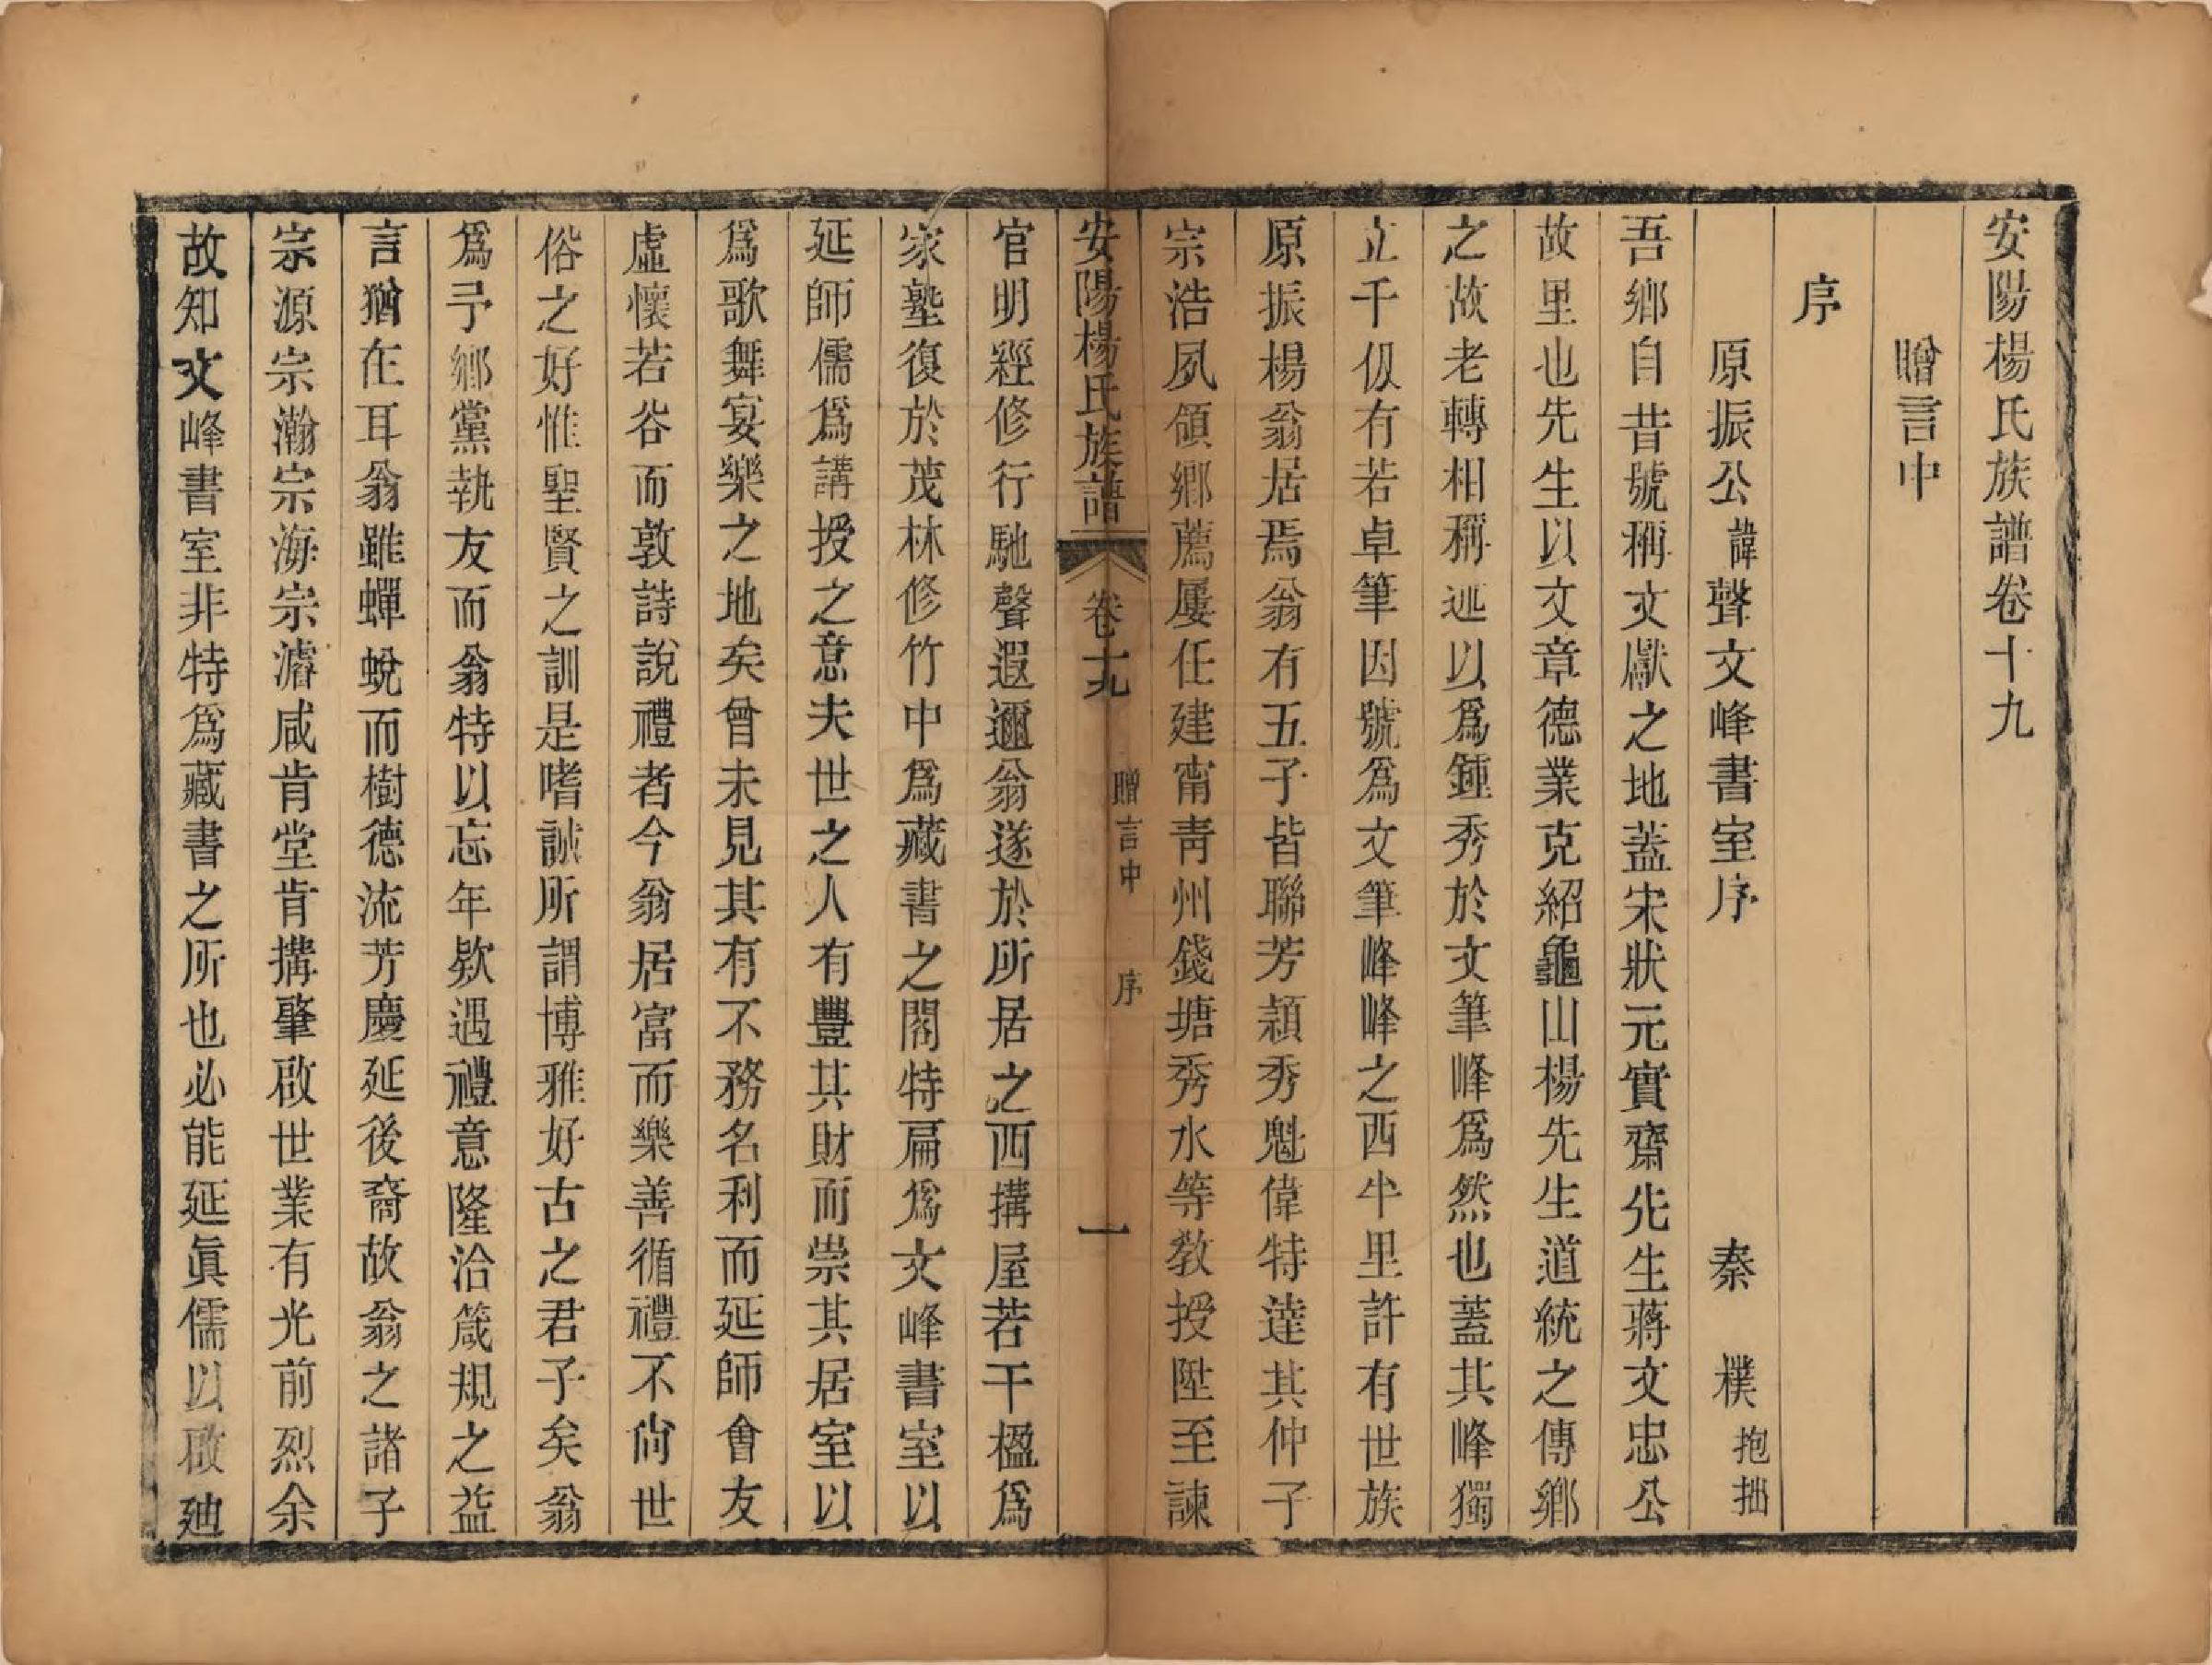 安陽楊氏族譜卷十九
贈言中
序
原振公諱聲文峰書室序 秦 樸抱拙
吾鄉自昔號稱文獻之地蓋宋狀元實齋先生蔣文忠公
故里也先生以文章德業克紹龜山楊先生道統之傳鄉
之故老轉相稱述以爲鍾秀於文筆峰爲然也蓋其峰獨
立千仭有若卓筆因號爲文筆峰峰之西半里許有世族
原振楊翁居焉翁有五子皆聯芳穎秀魁偉特達其仲子
宗浩夙領鄉薦屢任建甯靑州錢塘秀水等敎授陞至諫
安陽楊氏族譜 卷十九 贈言中 序 一
官明經修行馳聲遐邇翁遂於所居之西搆屋若干楹爲
家塾復於茂林修竹中爲藏書之閣特扁爲文峰書室以
延師儒爲講授之意夫世之人有豐其財而崇其居室以
爲歌舞宴樂之地矣曾未見其有不務名利而延師會友
虛懷若谷而敦詩說禮者今翁居富而樂善循禮不尙世
俗之好惟聖賢之訓是嗜誠所謂博雅好古之君子矣翁
爲予鄉黨執友而翁特以忘年欵遇禮意隆洽箴規之益
言猶在耳翁雖蟬蛻而樹德流芳慶延後裔故翁之諸子
宗源宗瀚宗海宗濬咸肯堂肯搆肇啟世業有光前烈余
故知文峰書室非特爲藏書之所也必能延眞儒以啟迪